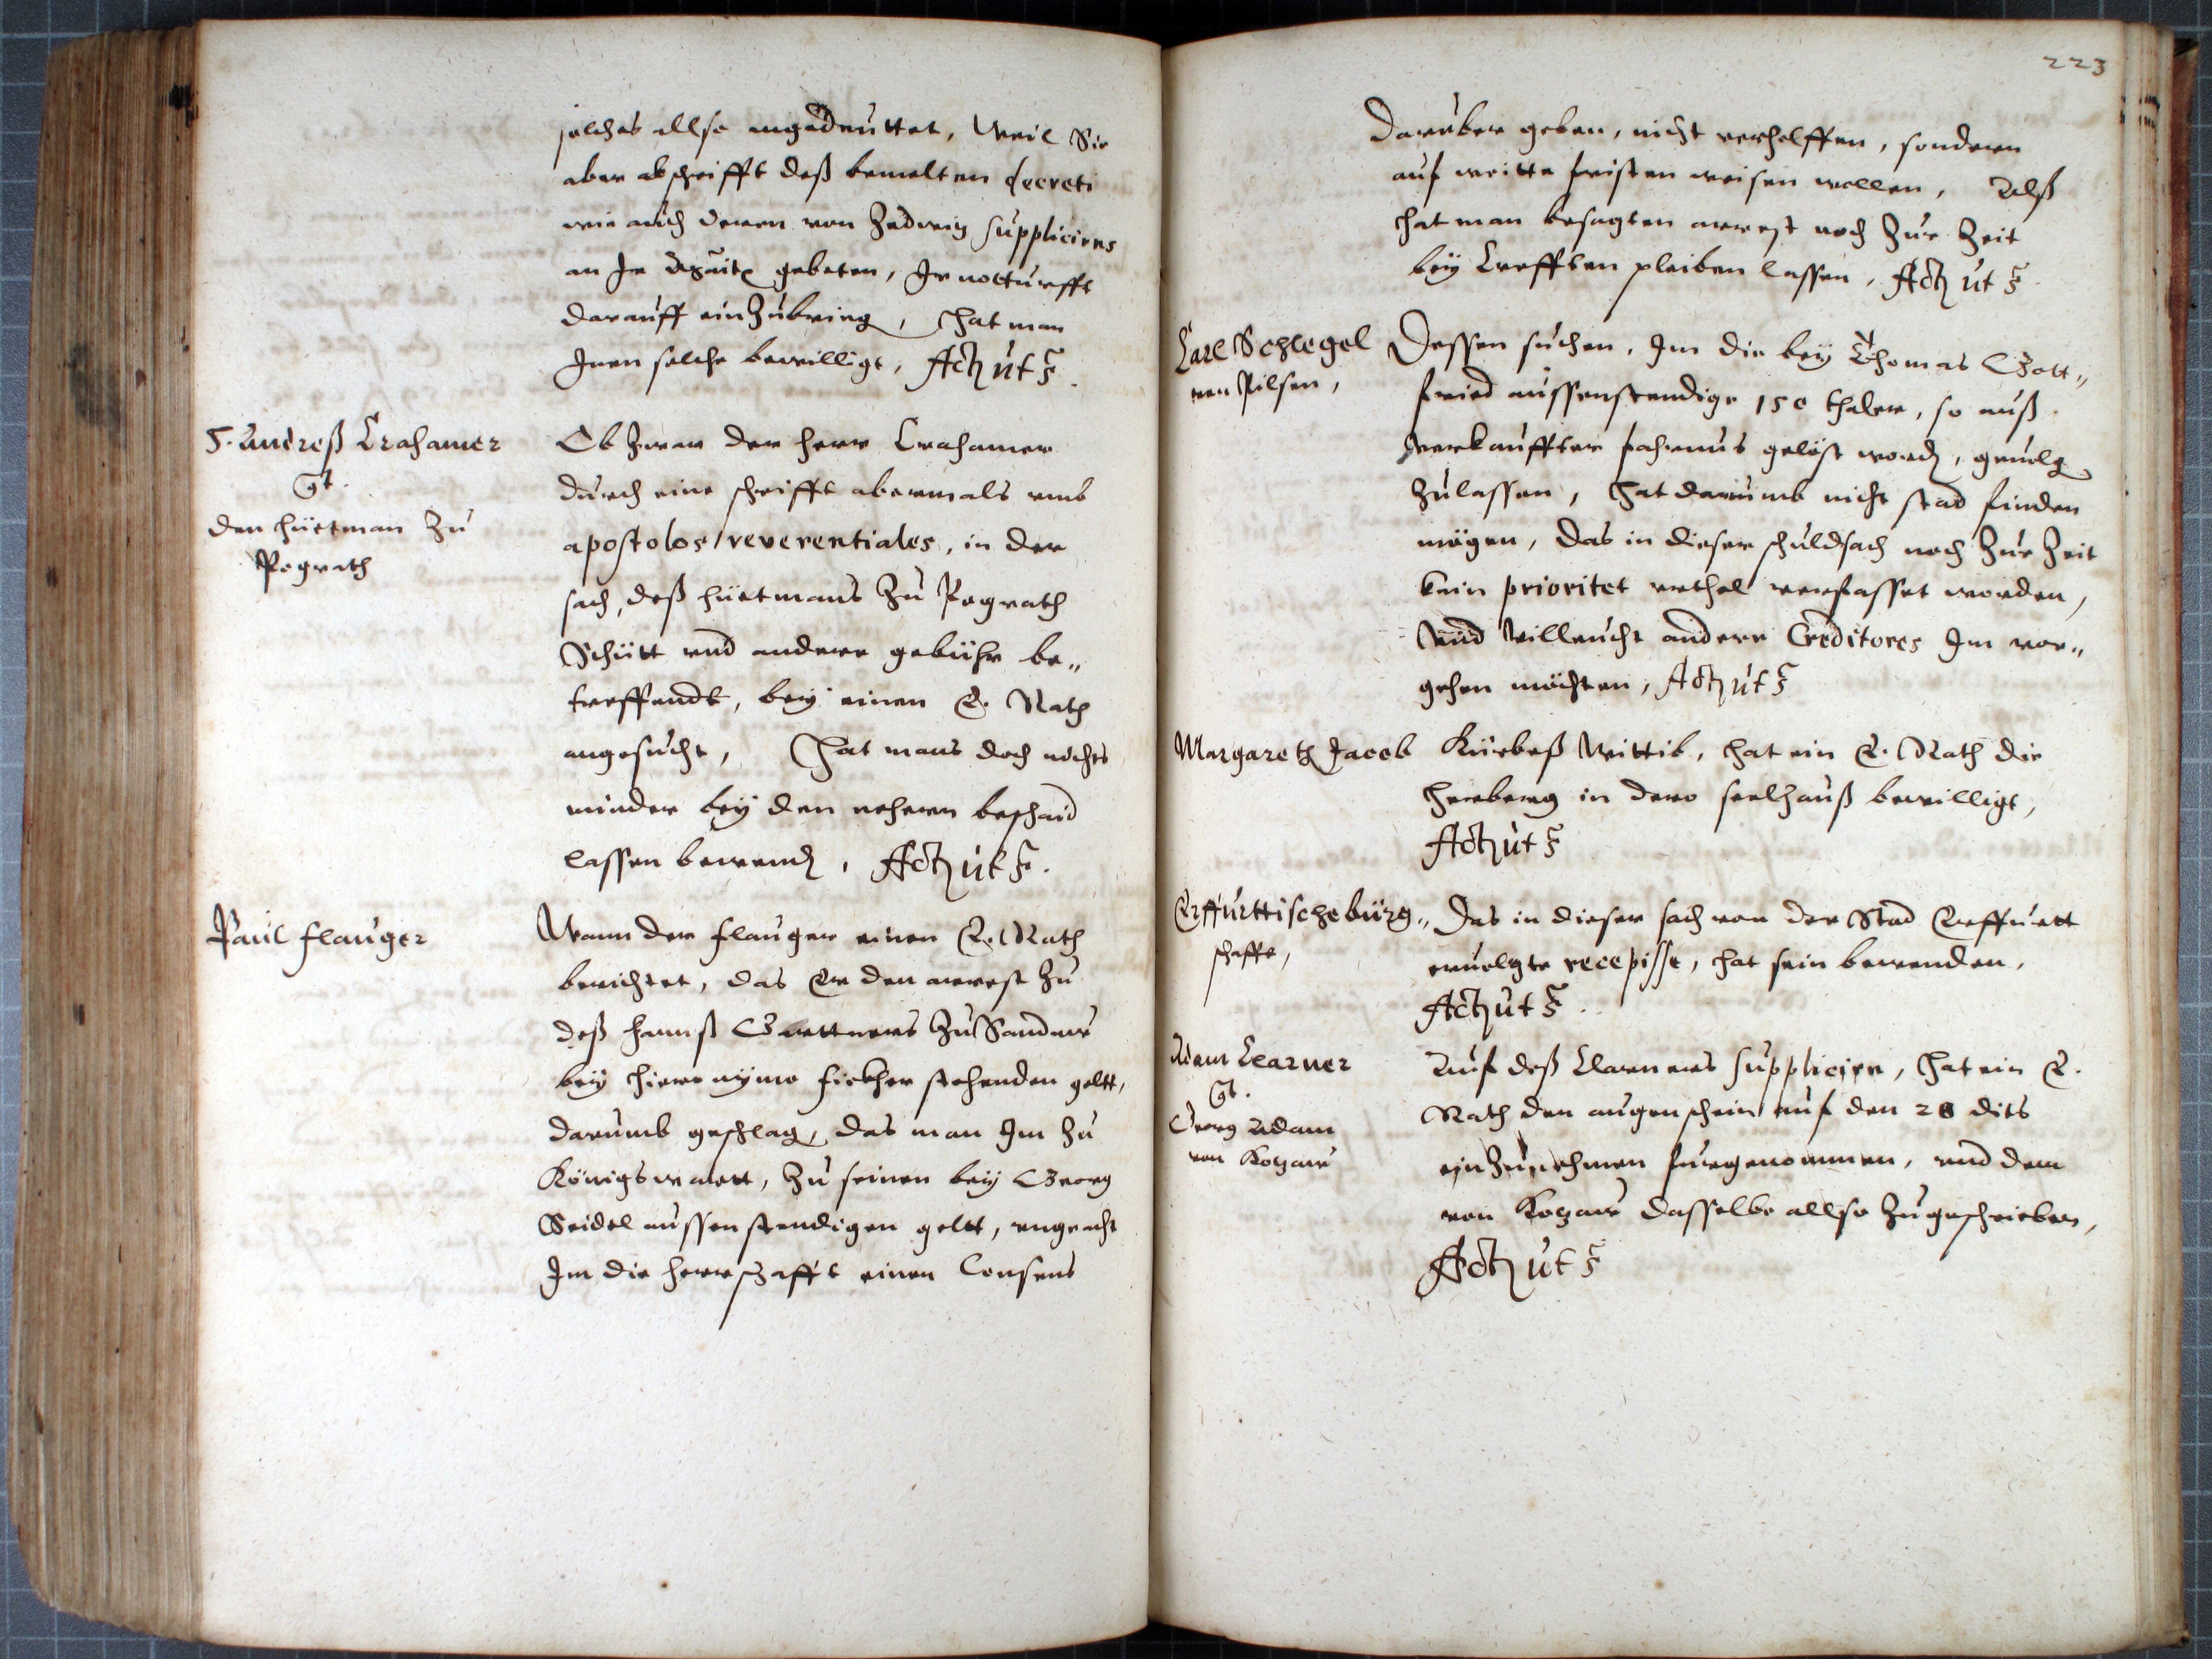 solches allso angedeuttet, Weil Sie
aber abschrifft deß bemelten decreti
wie auch deren von Zedwitz supplicirns
an Ir gebeten, Ir notturfft
darauff ein Zubring, hat man
Inen solche bewilligt, Actz ut s.
H. Andreß Crahamer
Ct.
den hüetman Zu
Pograth
Ob Zwar der herr Crahamer
durch eine schrifft abermals umb
apostolos reverentiales, in der
sach, deß hüetmans Zu Pograth
Schütt und andere gebühr be„
treffendt, bey einen E. Rath
angesucht, Hat mans doch nichts
minder bey den nehern beschaid
lassen bewend, Actz ut s.
Paul flauger
Wann der flauger einen E. Rath
berichtet, das Er den arrest Zu
deß hannß Grettners Zu Sandaw
bey Hieronymo fickher stehenden geltt,
darumb geschlag, das man Im Zu
Königswartt, Zu seinen bey Georg
Seidel aussenstendigen geltt, ungeacht
Im die herrschafft einen Consens
223
Darüber geben, nicht verhelffen, sonderen
auf weitte fristen weisen wollen, Alß
hat man besagten arrest noch Zur Zeit
bey Crefften pleiben lassen, Actz ut s.
Carl Schlegel
von Pilsen,
Dessen suchen, Im die bey Thomas Gott„
fried aussenstendige 150 thaler, so auß
verkauffter fahrnus gelöst word, gevolg
Zulassen, hat darumb nicht stad finden
mögen, das in dieser schuldsach noch Zur Zeit
kein prioritet urthel verfasset worden,
Und villeucht andere Creditores Im vor„
gehen möchten, Actz ut s
Margareth Jacob
Kürbeß Wittib, hat ein E. Rath die
herberg in dero seelhauß bewilligt,
Actz ut s
Erffurttische bürg„
schafft,
Das in dieser sach von der Stad Erffurtt
ervolgte recepisse, hat sein bewenden.
Actz ut s.
Adam Clarner
Ct.
Georg Adam
von Kotzaw
Auf deß Clarners suppliciren, hat ein E.
Rath den augenschein auf den 28 dits
einZunehmen furgenommen, und dem
von Kotzaw dasselbe allso Zugeschrieben,
Actz ut s